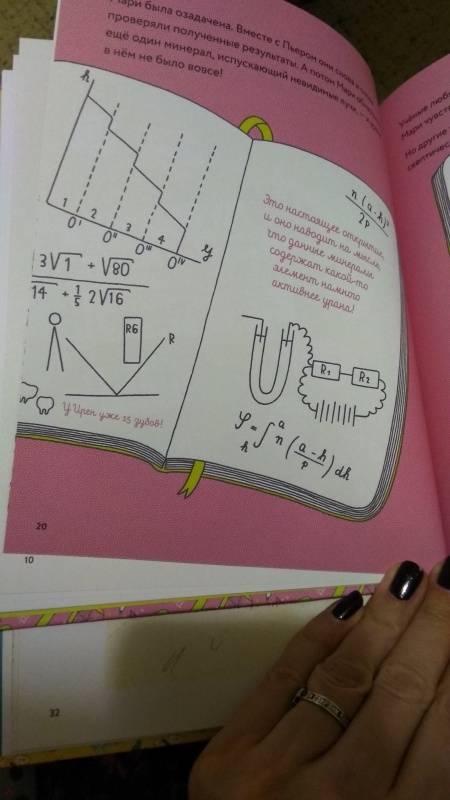 Мари была озадачена. Вместе с Пьером они снова и
проверяли полученные результаты. А потом Мари
ещё один минерал, испускающий невидимые лучи, —
в нём не было вовсе!
h
1 2 3 4
O' O'' O''' O^IV
y
3√1 + √80
14 + 1/5 2√16
R6
R
У Ирен уже 15 зубов!
n(a-h)²
2p
Это настоящее открытие,
и оно наводит на мысль,
что данные минералы
содержат какой-то
элемент намного
активнее урана!
R₁ R₂
φ = ∫ a h n (a-h / p) dh
20
10
32
Учёные
Мари
Но другие